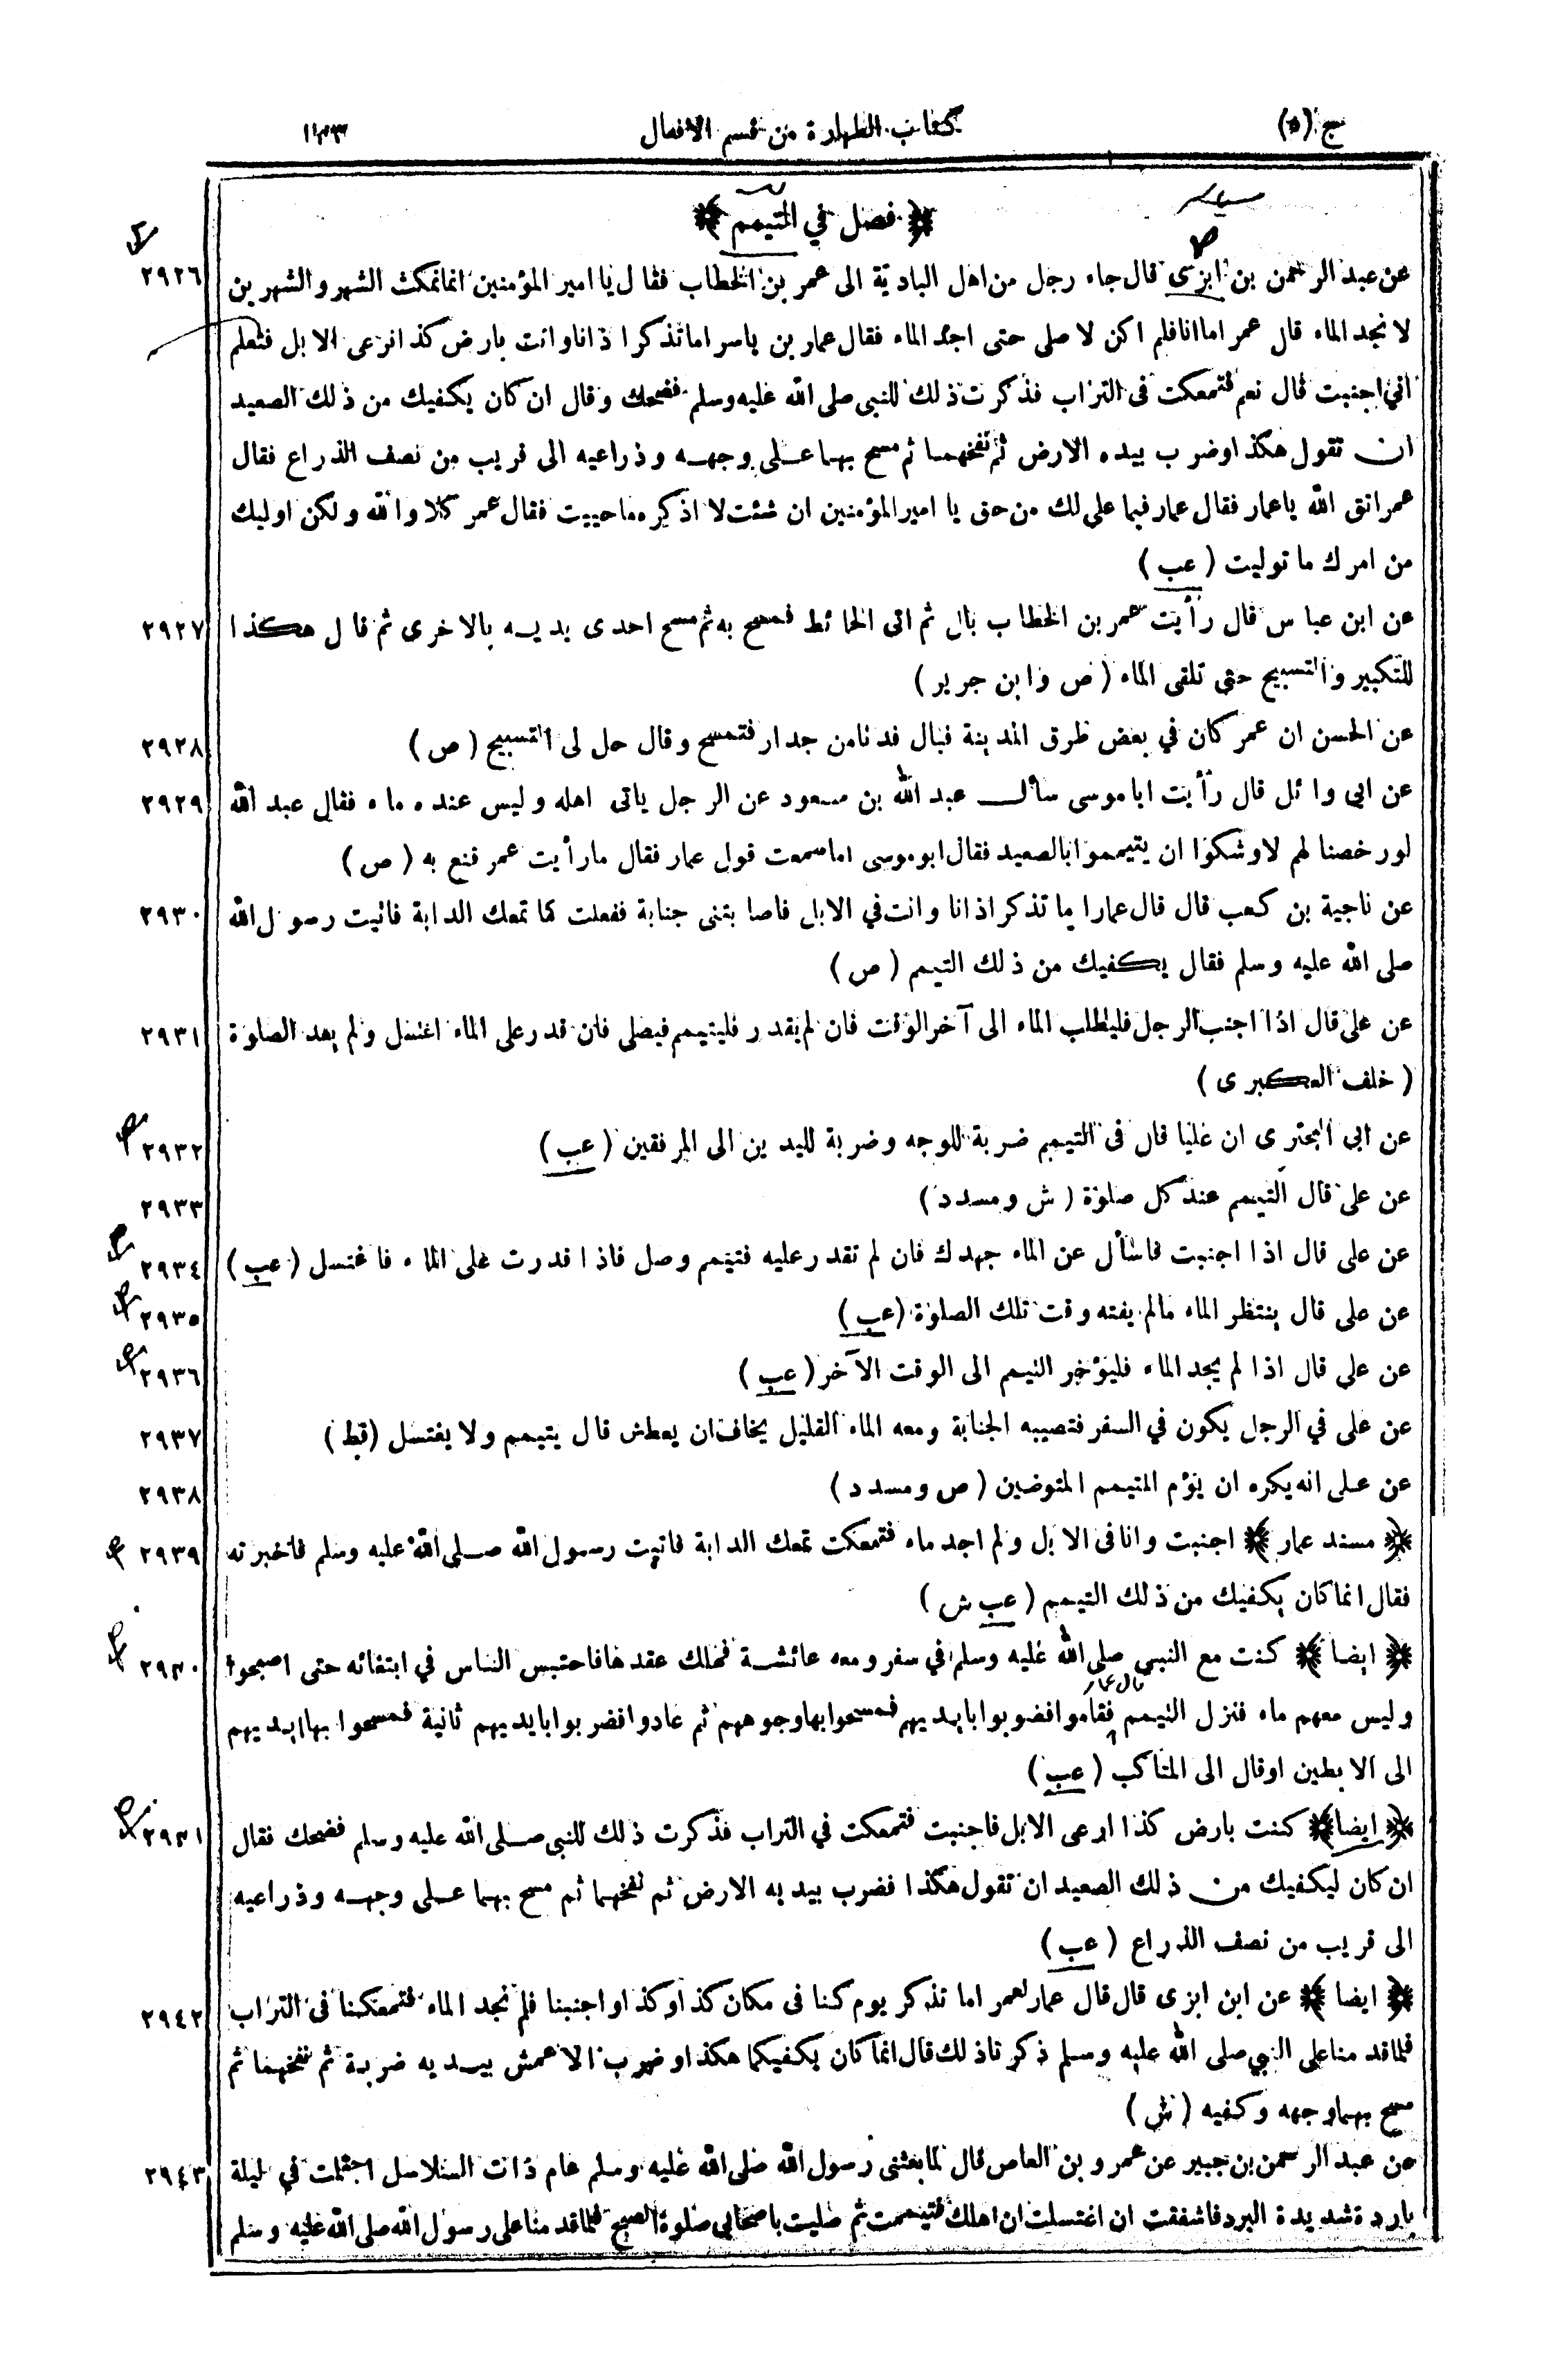 ج (٥) كتاب الطهارة من قسم الافعال ١٤٣
﴿ فصل في التيمم ﴾
عن عبد الرحمن بن ابزى قال جاء رجل من اهل البادية الى عمر بن الخطاب فقال يا امير المؤمنين انا نمكث الشهر والشهرين ٢٩٢٦
لا نجد الماء قال عمر اما انا فلم اكن لاصلى حتى اجد الماء فقال عمار بن ياسر اما تذكر اذ انا وانت بارض كذا نرعى الابل فتعلم
انى اجنبت قال نعم فتمعكت فى التراب فذكرت ذلك للنبى صلى الله عليه وسلم فضحك وقال ان كان يكفيك من ذلك الصعيد
ان تقول هكذا وضرب بيده الارض ثم نفخهما ثم مسح بهما على وجهه وذراعيه الى قريب من نصف الذراع فقال
عمر اتق الله يا عمار فقال عمار فبما على لك من حق يا امير المؤمنين ان شئت لا اذكره ما حييت فقال عمر كلا والله ولكن اوليك
من امرك ما توليت (عب)
عن ابن عباس قال رأيت عمر بن الخطاب بال ثم اتى الحائط فمسح به ثم مسح احدى يديه بالاخرى ثم قال هكذا ٢٩٢٧
للتكبير والتسبيح حتى تلقى الماء (ص وابن جرير)
عن الحسن ان عمر كان في بعض طرق المدينة فبال فدنا من جدار فتمسح وقال حل لى التسبيح (ص) ٢٩٢٨
عن ابى وائل قال رأيت ابا موسى سأل عبد الله بن مسعود عن الرجل ياتى اهله وليس عنده ماء فقال عبد الله ٢٩٢٩
لو رخصنا لهم لاوشكوا ان يتيمموا بالصعيد فقال ابو موسى اما سمعت قول عمار فقال ما رأيت عمر قنع به (ص)
عن ناجية بن كعب قال قال عمار اما تذكر اذ انا وانت في الابل فاصابتنى جنابة ففعلت كما تمعك الدابة فاتيت رسول الله ٢٩٣٠
صلى الله عليه وسلم فقال يكفيك من ذلك التيمم (ص)
عن على قال اذا اجنب الرجل فليطلب الماء الى آخر الوقت فان لم يقدر فليتيمم فيصلى فان قدر على الماء اغتسل ولم يعد الصلوة ٢٩٣١
(خلف العكبرى)
عن ابى البحترى ان عليا قال فى التيمم ضربة للوجه وضربة لليدين الى المرفقين (عب) ٢٩٣٢
عن على قال التيمم عند كل صلوة (ش ومسدد) ٢٩٣٣
عن على قال اذا اجنبت فاسأل عن الماء جهدك فان لم تقدر عليه فتيمم وصل فاذا قدرت على الماء فاغتسل (عب) ٢٩٣٤
عن على قال ينتظر الماء ما لم يفته وقت تلك الصلوة (عب) ٢٩٣٥
عن على قال اذا لم يجد الماء فليؤخر التيمم الى الوقت الآخر (عب) ٢٩٣٦
عن على في الرجل يكون في السفر فتصيبه الجنابة ومعه الماء القليل يخاف ان يعطش قال يتيمم ولا يغتسل (قط) ٢٩٣٧
عن على انه يكره ان يؤم المتيمم المتوضين (ص ومسدد) ٢٩٣٨
﴿ مسند عمار ﴾ اجنبت وانا فى الابل ولم اجد ماء فتمعكت تمعك الدابة فاتيت رسول الله صلى الله عليه وسلم فاخبرته ٢٩٣٩
فقال انما كان يكفيك من ذلك التيمم (عب ش)
﴿ ايضا ﴾ كنت مع النبى صلى الله عليه وسلم في سفر ومعه عائشة فهلك عقدها فاحتبس الناس في ابتغائه حتى اصبحوا ٢٩٤٠
وليس معهم ماء فنزل التيمم قال عمار فقاموا فضربوا بايديهم فمسحوا بها وجوههم ثم عادوا فضربوا بايديهم ثانية فمسحوا بها ايديهم
الى الابطين او قال الى المناكب (عب)
﴿ ايضا ﴾ كنت بارض كذا ارعى الابل فاجنبت فتمعكت في التراب فذكرت ذلك للنبى صلى الله عليه وسلم فضحك فقال ٢٩٤١
ان كان ليكفيك من ذلك الصعيد ان تقول هكذا فضرب بيديه الارض ثم نفخهما ثم مسح بهما على وجهه وذراعيه
الى قريب من نصف الذراع (عب)
﴿ ايضا ﴾ عن ابن ابزى قال قال عمار لعمر اما تذكر يوم كنا فى مكان كذا وكذا واجنبنا فلم نجد الماء فتمعكنا فى التراب ٢٩٤٢
فلما قدمنا على النبى صلى الله عليه وسلم ذكرنا ذلك قال انما كان يكفيكما هكذا وضرب الاعمش بيديه ضربة ثم نفخهما ثم
مسح بهما وجهه وكفيه (ش)
عن عبد الرحمن بن جبير عن عمرو بن العاص قال لما بعثنى رسول الله صلى الله عليه وسلم عام ذات السلاسل احتلمت في ليلة ٢٩٤٣
باردة شديدة البرد فاشفقت ان اغتسلت ان اهلك فتيممت ثم صليت باصحابى صلوة الصبح فلما قدمنا على رسول الله صلى الله عليه وسلم